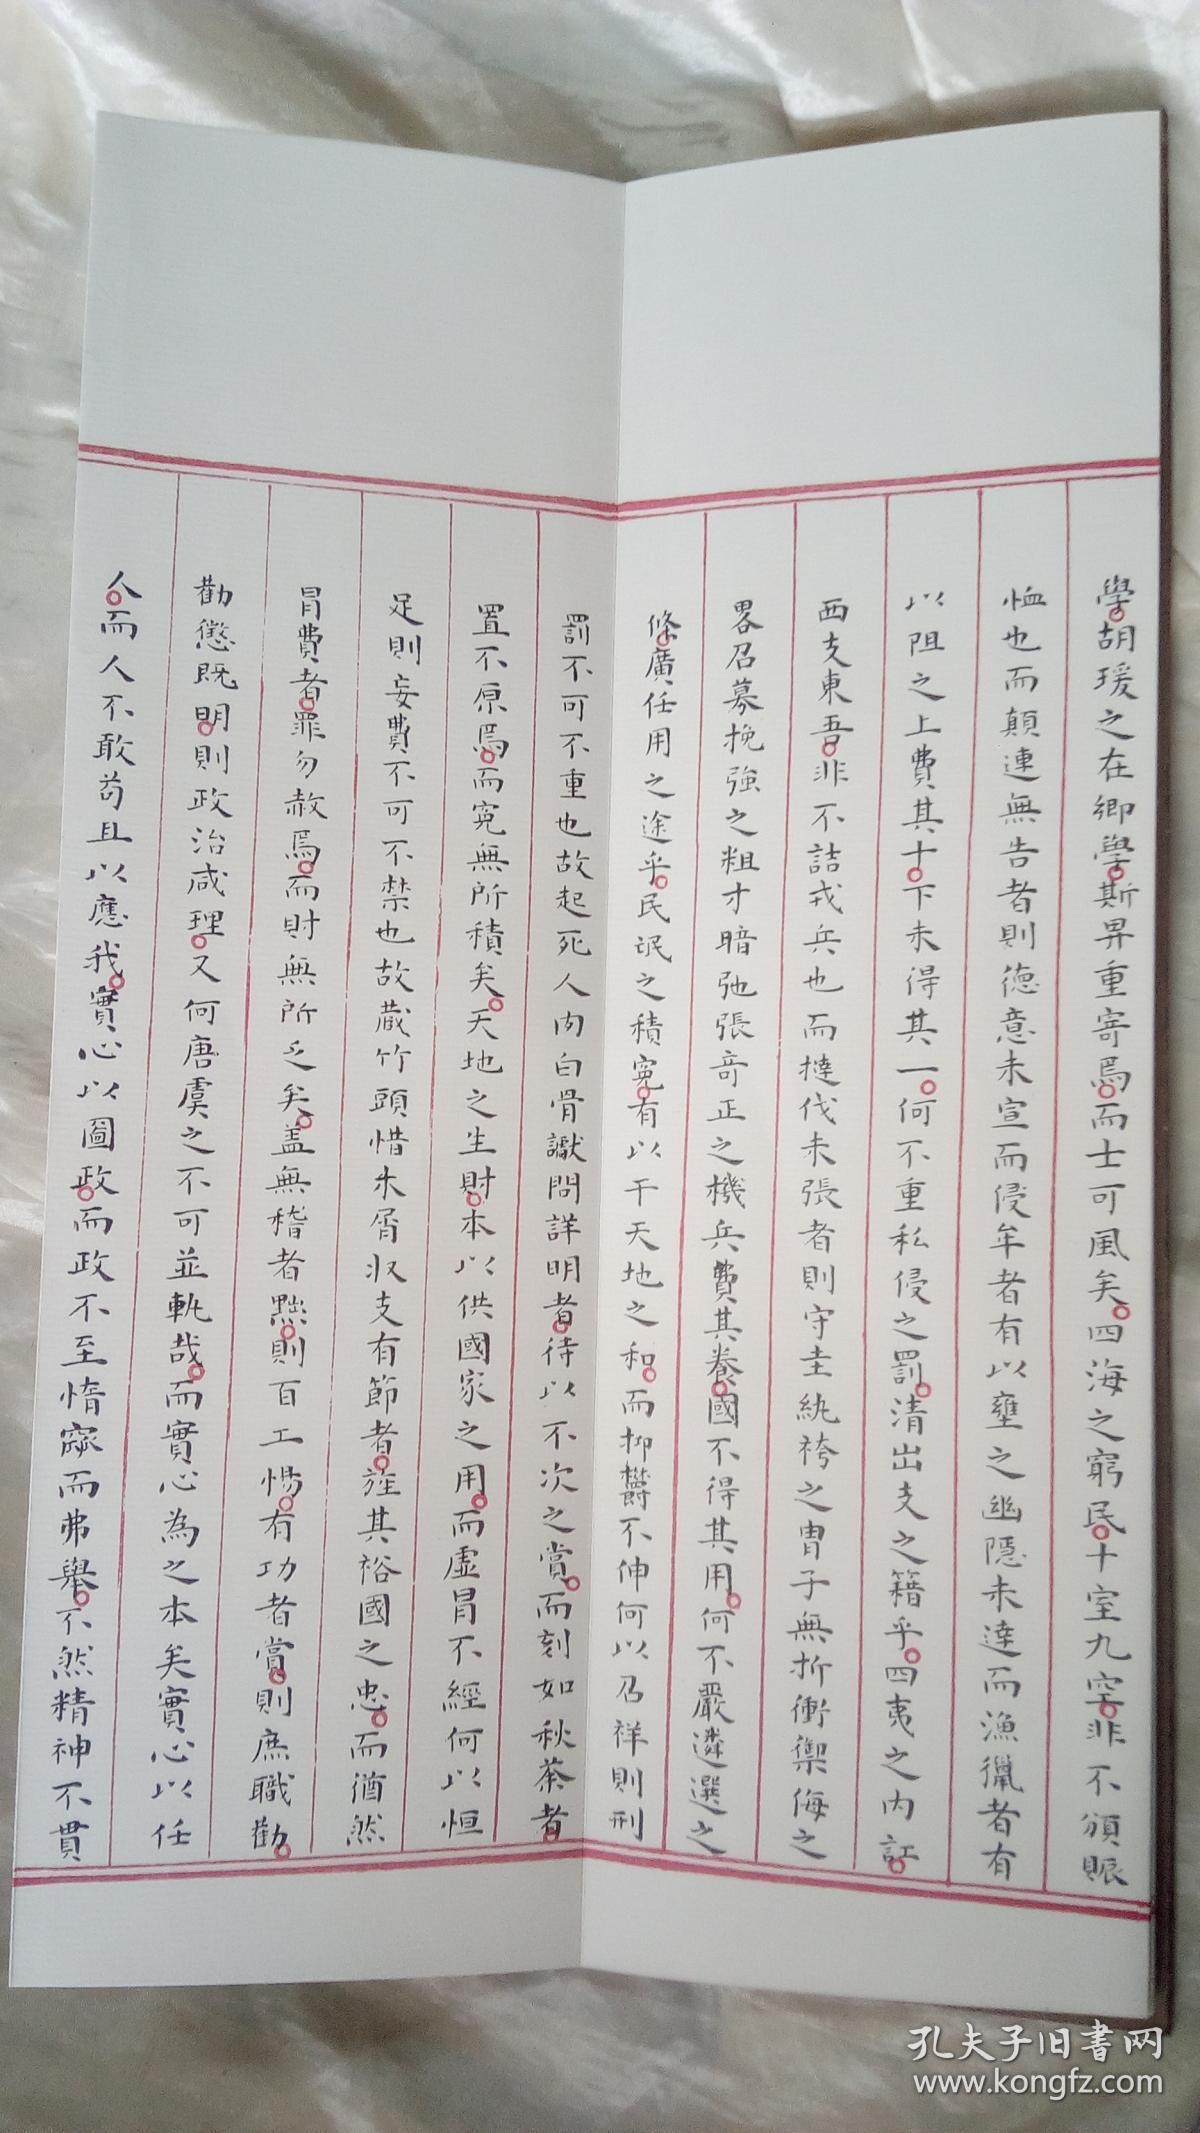 學胡瑗之在鄉學斯畀重寄焉而士可風矣四海之窮民十室九空非不頒賑
恤也而顛連無告者則德意未宣而侵牟者有以壅之幽隱未達而漁獵者有
以阻之上費其十下未得其一何不重私侵之罰清出支之籍乎四夷之内訌
西支東吾非不詰戎兵也而撻伐未張者則守圭紈袴之胄子無折衝禦侮之
畧召募挽強之粗才暗弛張竒正之機兵費其養國不得其用何不嚴遴選之
條廣任用之途乎民氓之積寃有以干天地之和而抑欝不伸何以乃祥則刑
罰不可不重也故起死人肉白骨讞問詳明者待以不次之賞而刻如秋荼者
置不原焉而寃無所積矣天地之生財本以供國家之用而虛冒不經何以恒
足則妄費不可不禁也故藏竹頭惜木屑収支有節者旌其裕國之忠而猶然
冒費者罪勿赦焉而財無所乏矣盖無稽者黜則百工惕有功者賞則庶職勸
勸懲既明則政治咸理又何唐虞之不可並軌哉而實心為之本矣實心以任
人而人不敢苟且以應我實心以圖政而政不至惰窳而弗舉不然精神不貫
孔夫子旧书网
www.kongfz.com